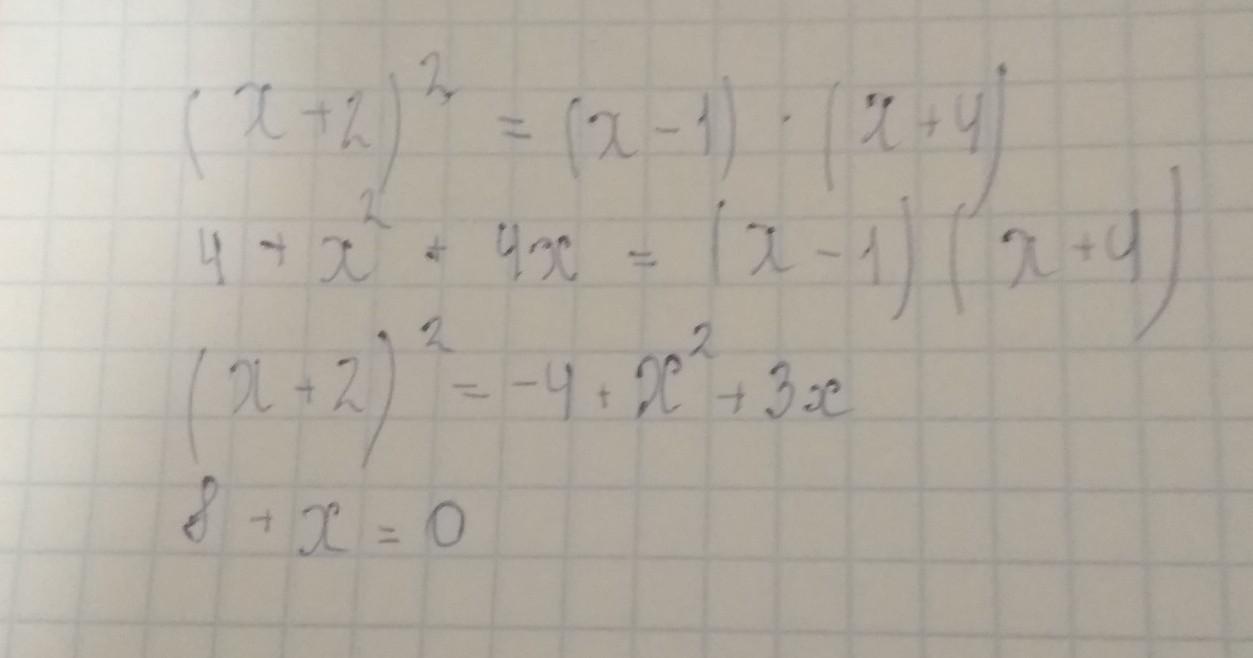 (x+2)² = (x-1) · (x+4)
4 + x² + 4x = (x-1)(x+4)
(x+2)² = -4 + x² + 3x
8 + x = 0